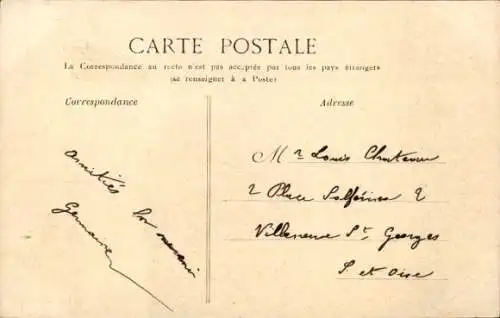 CARTE POSTALE
La Correspondance au recto n'est pas acceptée par tous les pays étrangers
(se renseigner à a Poste)
Correspondance
Adresse
amitiés
Germaine
Mr Louis
2 Place Solférino 2
Villeneuve St Georges
S. et Oise